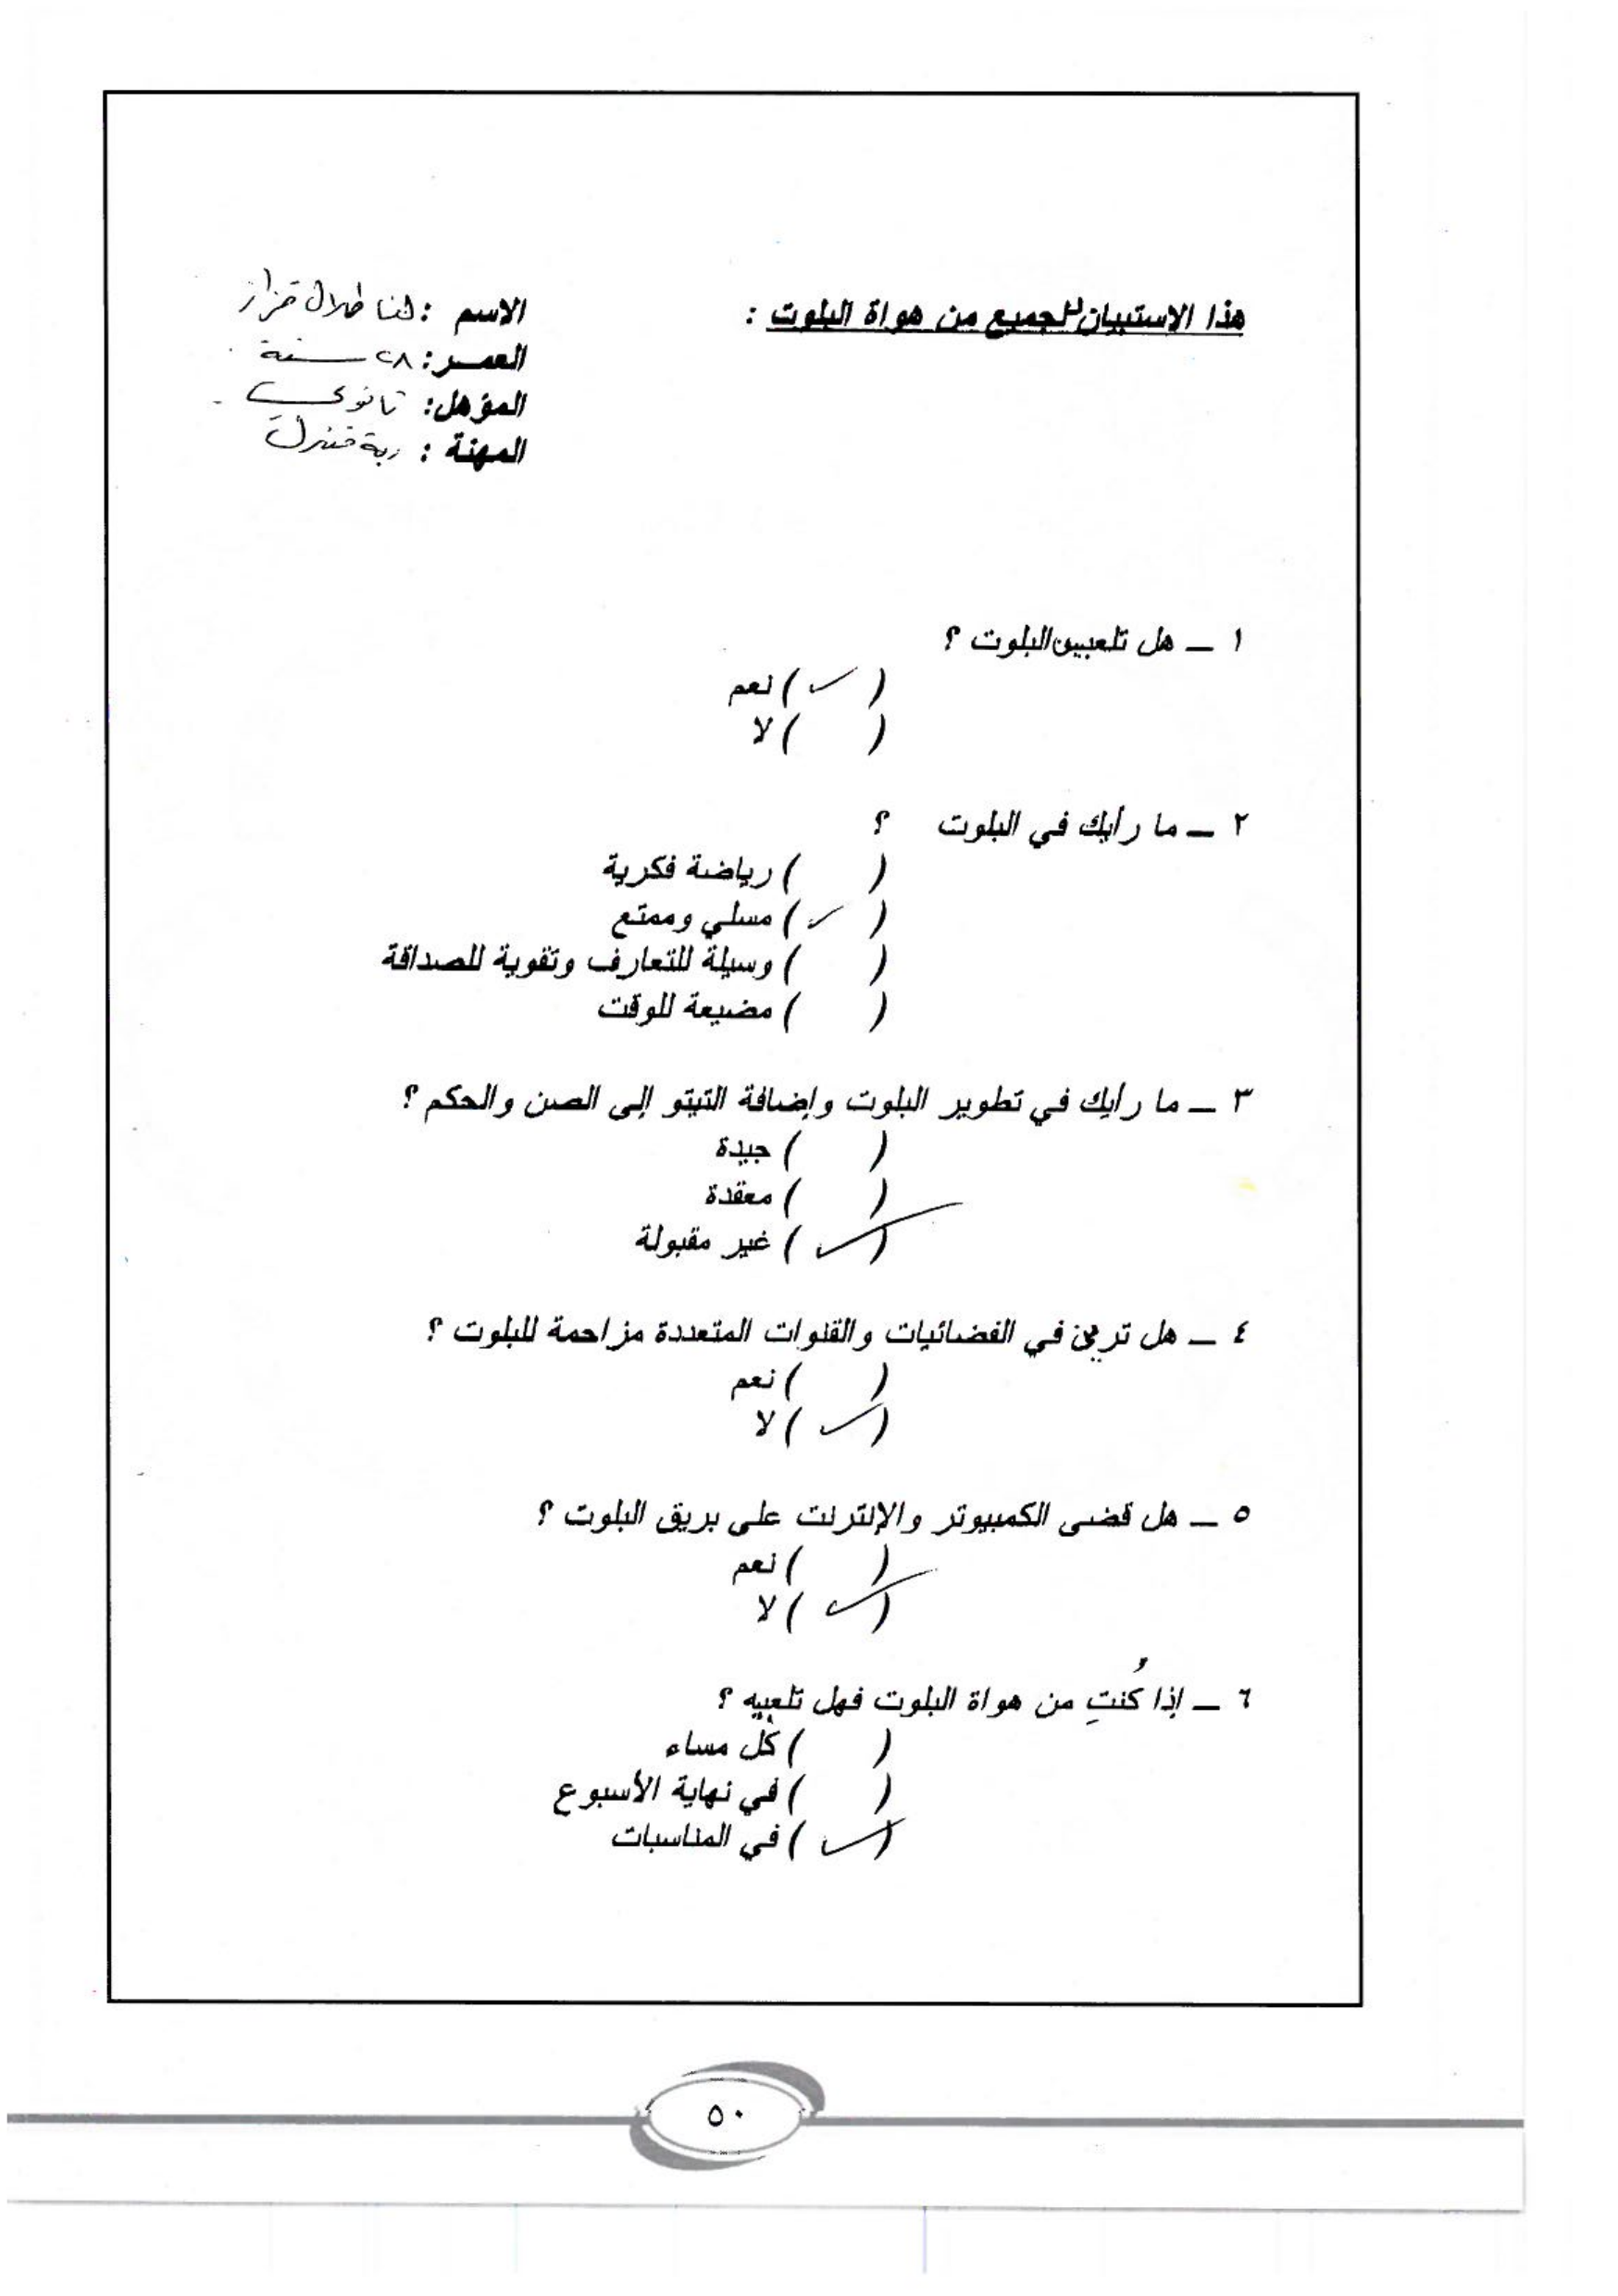 هذا الاستبيان للجميع من هواة البلوت :
الاسم : لنا طلال قزاز
العمـر : ٢٨ سنة
المؤهل : ثانوي
المهنة : ربة منزل
١ ــ هل تلعبين البلوت ؟
( ✓ ) نعم
( ) لا
٢ ــ ما رأيك في البلوت ؟
( ) رياضة فكرية
( ✓ ) مسلي وممتع
( ) وسيلة للتعارف وتقوية للصداقة
( ) مضيعة للوقت
٣ ــ ما رأيك في تطوير البلوت وإضافة التيتو إلى الصن والحكم ؟
( ) جيدة
( ) معقدة
( ✓ ) غير مقبولة
٤ ــ هل ترين في الفضائيات والقنوات المتعددة مزاحمة للبلوت ؟
( ) نعم
( ✓ ) لا
٥ ــ هل قضى الكمبيوتر والإنترنت على بريق البلوت ؟
( ) نعم
( ✓ ) لا
٦ ــ إذا كُنتِ من هواة البلوت فهل تلعبيه ؟
( ) كل مساء
( ) في نهاية الأسبوع
( ✓ ) في المناسبات
٥٠